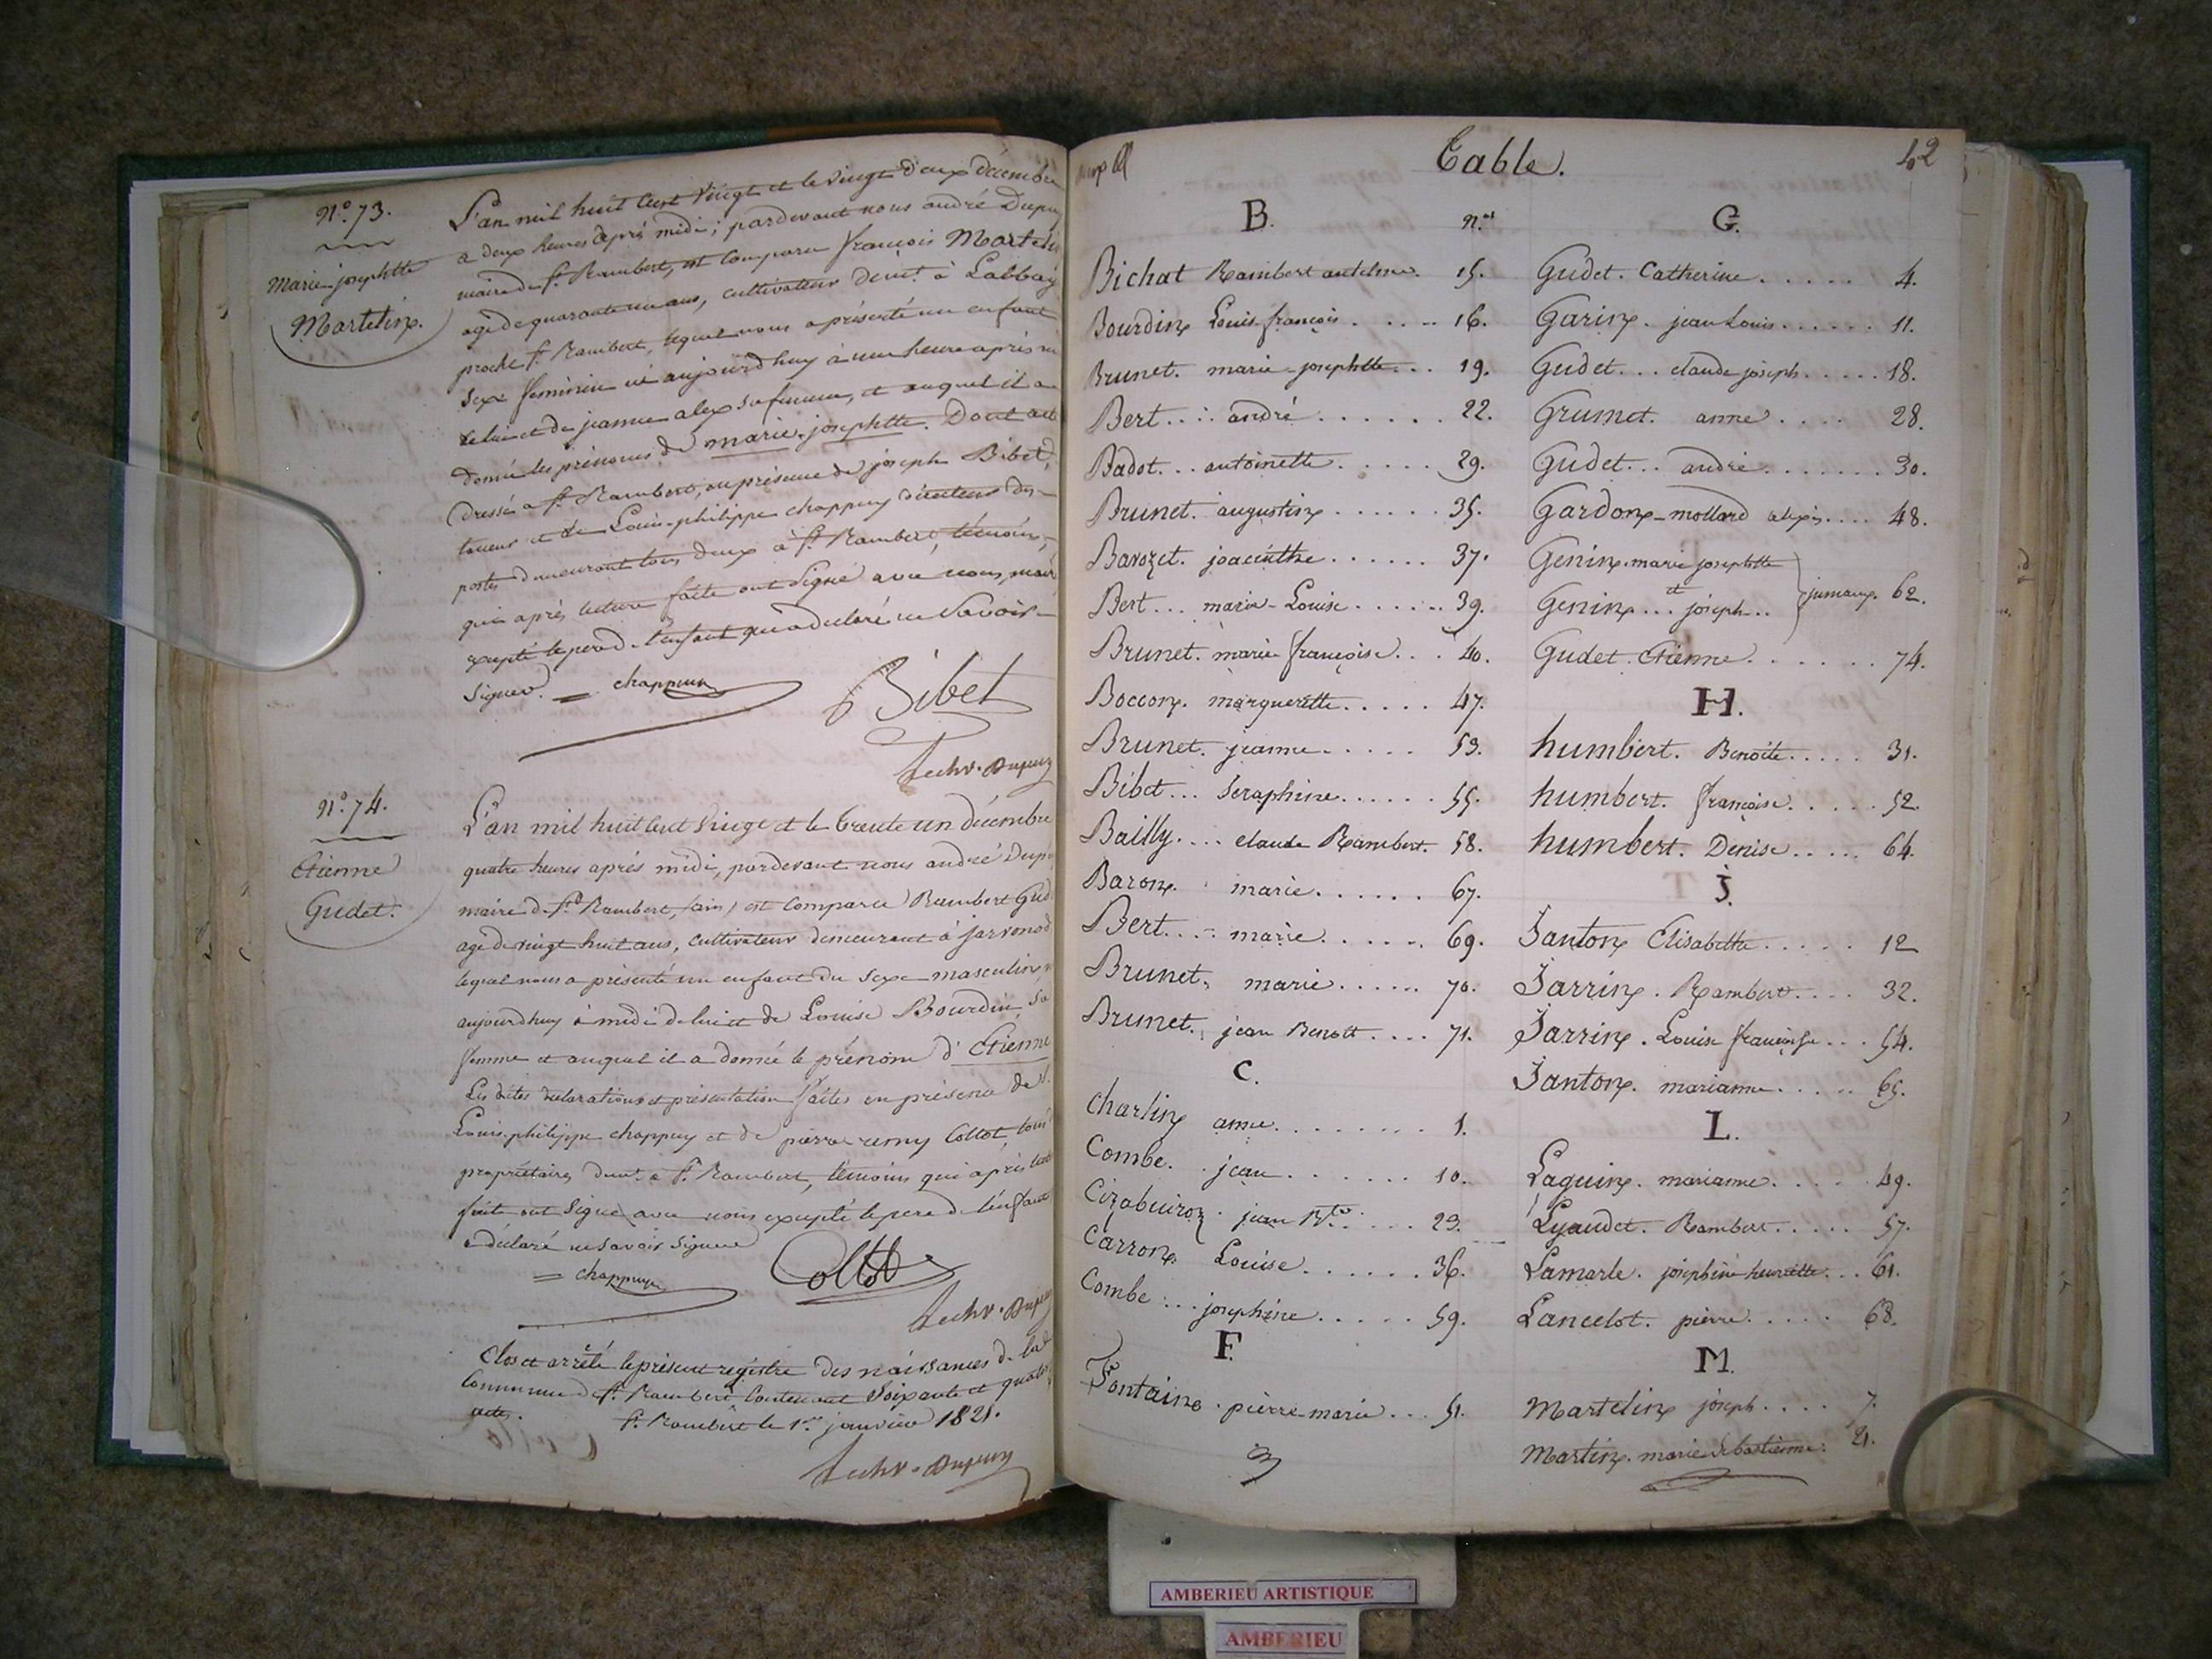 N.° 73.
Marie josephtte
Martelin.
L'an mil huit Cent Vingt et le vingt deux décembre
a deux heures après midi ; pardevant nous andré Dupuy
maire de St. Rambert, est Comparu françois Martelin
agé de quarante un ans, cultivateur demt. à Labbaÿ
proche St. Rambert, lequel nous a présenté un enfant
sexe féminin né aujourd'huy à une heure après mi
de lui et de jeanne alex sa femme, et auquel il a
donné les prénoms de marie-josephtte. Dont acte
dressé a St. Rambert, en présence de joseph Bibet,
et de Louis-philippe chappuy directeur des
postes demeurant tous deux à St. Rambert, témoins,
qui après lecture faite ont Signé avec nous, maire
excepté le pere de l'enfant qui a déclaré ne Savoir
Signer. = chappuy
Bibet
Dupuy
N.° 74.
Etienne
Gudet.
L'an mil huit Cent Vingt et le trente un décembre
quatre heures après midi, pardevant nous andré Dupuy
maire de St. Rambert, (ain) est Comparu Rambert Gud
agé de vingt huit ans, cultivateur demeurant à javornod
lequel nous a présenté un enfant du Sexe masculin, n
aujourd'huy à midi de lui et de Louise Bourdin, Sa
femme et auquel il a donné le prénom d'Etienne
Les dites déclaration et présentation faites en présence de S.
Louis-philippe chappuy et de pierre remy Collot, tous
propriétaires demt. à St. Rambert, témoins qui après lect
faite ont Signé avec nous excepté le pere de l'enfant
a déclaré ne Savoir Signer
= chappuy Collot
Dupuy
Clos et arrêté le présent registre des naissances de la d
Commune de St. Rambert, Contenant Soixante et quatorz
actes. St. Rambert le 1er. janvier 1821.
Dupuy
Table. 42
B. n.os
Bichat Rambert antelme. 15.
Bourdin Louis françois . . . . 16.
Brunet. marie-josephtte. . . 19.
Bert . . . andré . . . . . . 22.
Badot . . . antoinette . . . . . 29.
Brunet. augustin . . . . . . 35.
Bavozet. joacinthe . . . . . . 37.
Bert . . . marie-Louise . . . . . 39.
Brunet. marie françoise . . . 40.
Boccon. marguerite . . . . . 47.
Brunet. jeanne . . . . . 53.
Bibet . . . Seraphine . . . . . . 55.
Bailly . . . . claude Rambert. 58.
Baron. marie . . . . . . 67.
Bert . . . . marie . . . . . . 69.
Brunet. marie . . . . . . 70.
Brunet. jean Benoit . . . . 71.
C.
Charlin anne . . . . . . . . 1.
Combe. jean . . . . . . . 10.
Cizabuiroz. jean Bte. . . . . 23.
Carron. Louise . . . . . . 36.
Combe . . . josephine . . . . . 59.
F.
Fontaine. pierre-marie . . . 51.
G.
Gudet. Catherine . . . . . 4.
Garin. jean Louis . . . . . . 11.
Gudet . . . claude joseph . . . . . 18.
Grumet. anne . . . . 28.
Gudet . . . andré . . . . . . . 30.
Gardon-mollard alexis . . . . 48.
Genin. marie josephtte
et jumeaux. 62.
Genin . . . joseph . .
Gudet. Etienne . . . . . . . 74.
H.
humbert. Benoite . . . . . 31.
humbert. françoise . . . . . 52.
humbert. Denise . . . . . 64.
J.
Janton Elisabette . . . . . 12
Jarrin. Rambert . . . . 32.
Jarrin. Louise françoise . . . 54.
Janton. marianne . . . . . 65.
L.
Laguin. marianne . . . . . 49.
Lyaudet. Rambert . . . . . 57.
Lamarle. joséphine henriette . . . 61.
Lancelot. pierre . . . . . 68.
M.
Martelin joseph . . . . 7.
Martin. marie Sebastienne. 21.
AMBERIEU ARTISTIQUE
AMBERIEU